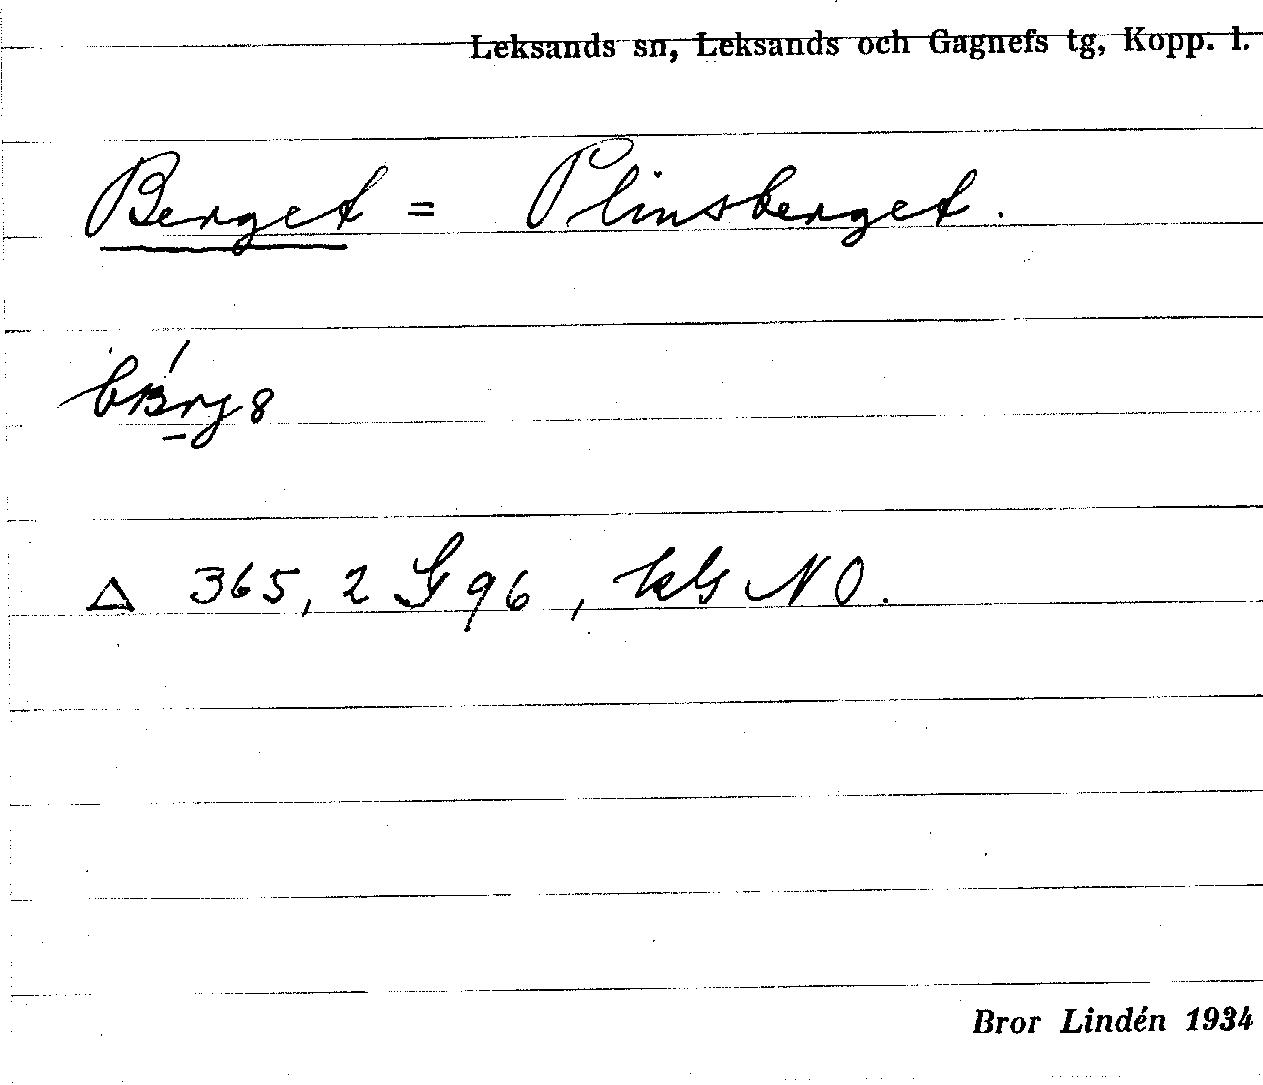 Leksands sn, Leksands och Gagnefs tg, Kopp. l.
Berget = Plinsberget.
△ 365,2 G 96, kbl NO.
Bror Lindén 1934